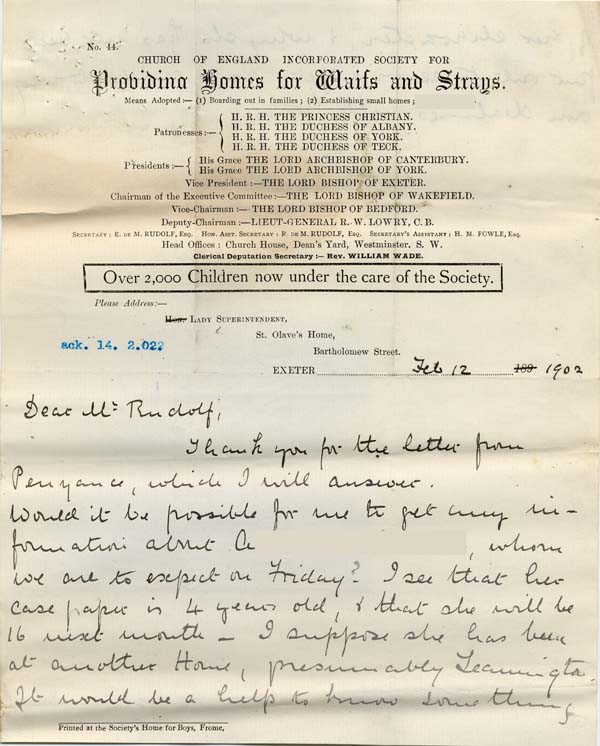 No. 44.
CHURCH OF ENGLAND INCORPORATED SOCIETY FOR
Providing Homes for Waifs and Strays.
Means Adopted :— (1) Boarding out in families ; (2) Establishing small homes ;
Patronesses :—
H. R. H. THE PRINCESS CHRISTIAN.
H. R. H. THE DUCHESS OF ALBANY.
H. R. H. THE DUCHESS OF YORK.
H. R. H. THE DUCHESS OF TECK.
Presidents :—
His Grace THE LORD ARCHBISHOP OF CANTERBURY.
His Grace THE LORD ARCHBISHOP OF YORK.
Vice President :—THE LORD BISHOP OF EXETER.
Chairman of the Executive Committee :—THE LORD BISHOP OF WAKEFIELD.
Vice-Chairman :— THE LORD BISHOP OF BEDFORD.
Deputy-Chairman :—LIEUT-GENERAL R. W. LOWRY, C. B.
SECRETARY : E. DE M. RUDOLF, ESQ. HON. ASST. SECRETARY : R. DE M. RUDOLF, ESQ. SECRETARY'S ASSISTANT : H. M. FOWLE, ESQ.
Head Offices : Church House, Dean's Yard, Westminster. S. W.
Clerical Deputation Secretary :— Rev. WILLIAM WADE.
Over 2,000 Children now under the care of the Society.
Please Address :—
Hon. LADY SUPERINTENDENT,
St. Olave's Home,
ack. 14. 2.02?
Bartholomew Street.
EXETER Feb 12 189 1902
Dear Mr Rudolf,
Thank you for the letter from
Penzance, which I will answer.
Would it be possible for me to get any in-
formation about A , whom
we are to expect on Friday? I see that her
case paper is 4 years old, & that she will be
16 next month – I suppose she has been
at another Home, presumably Leamington.
It would be a help to know something
Printed at the Society's Home for Boys, Frome,